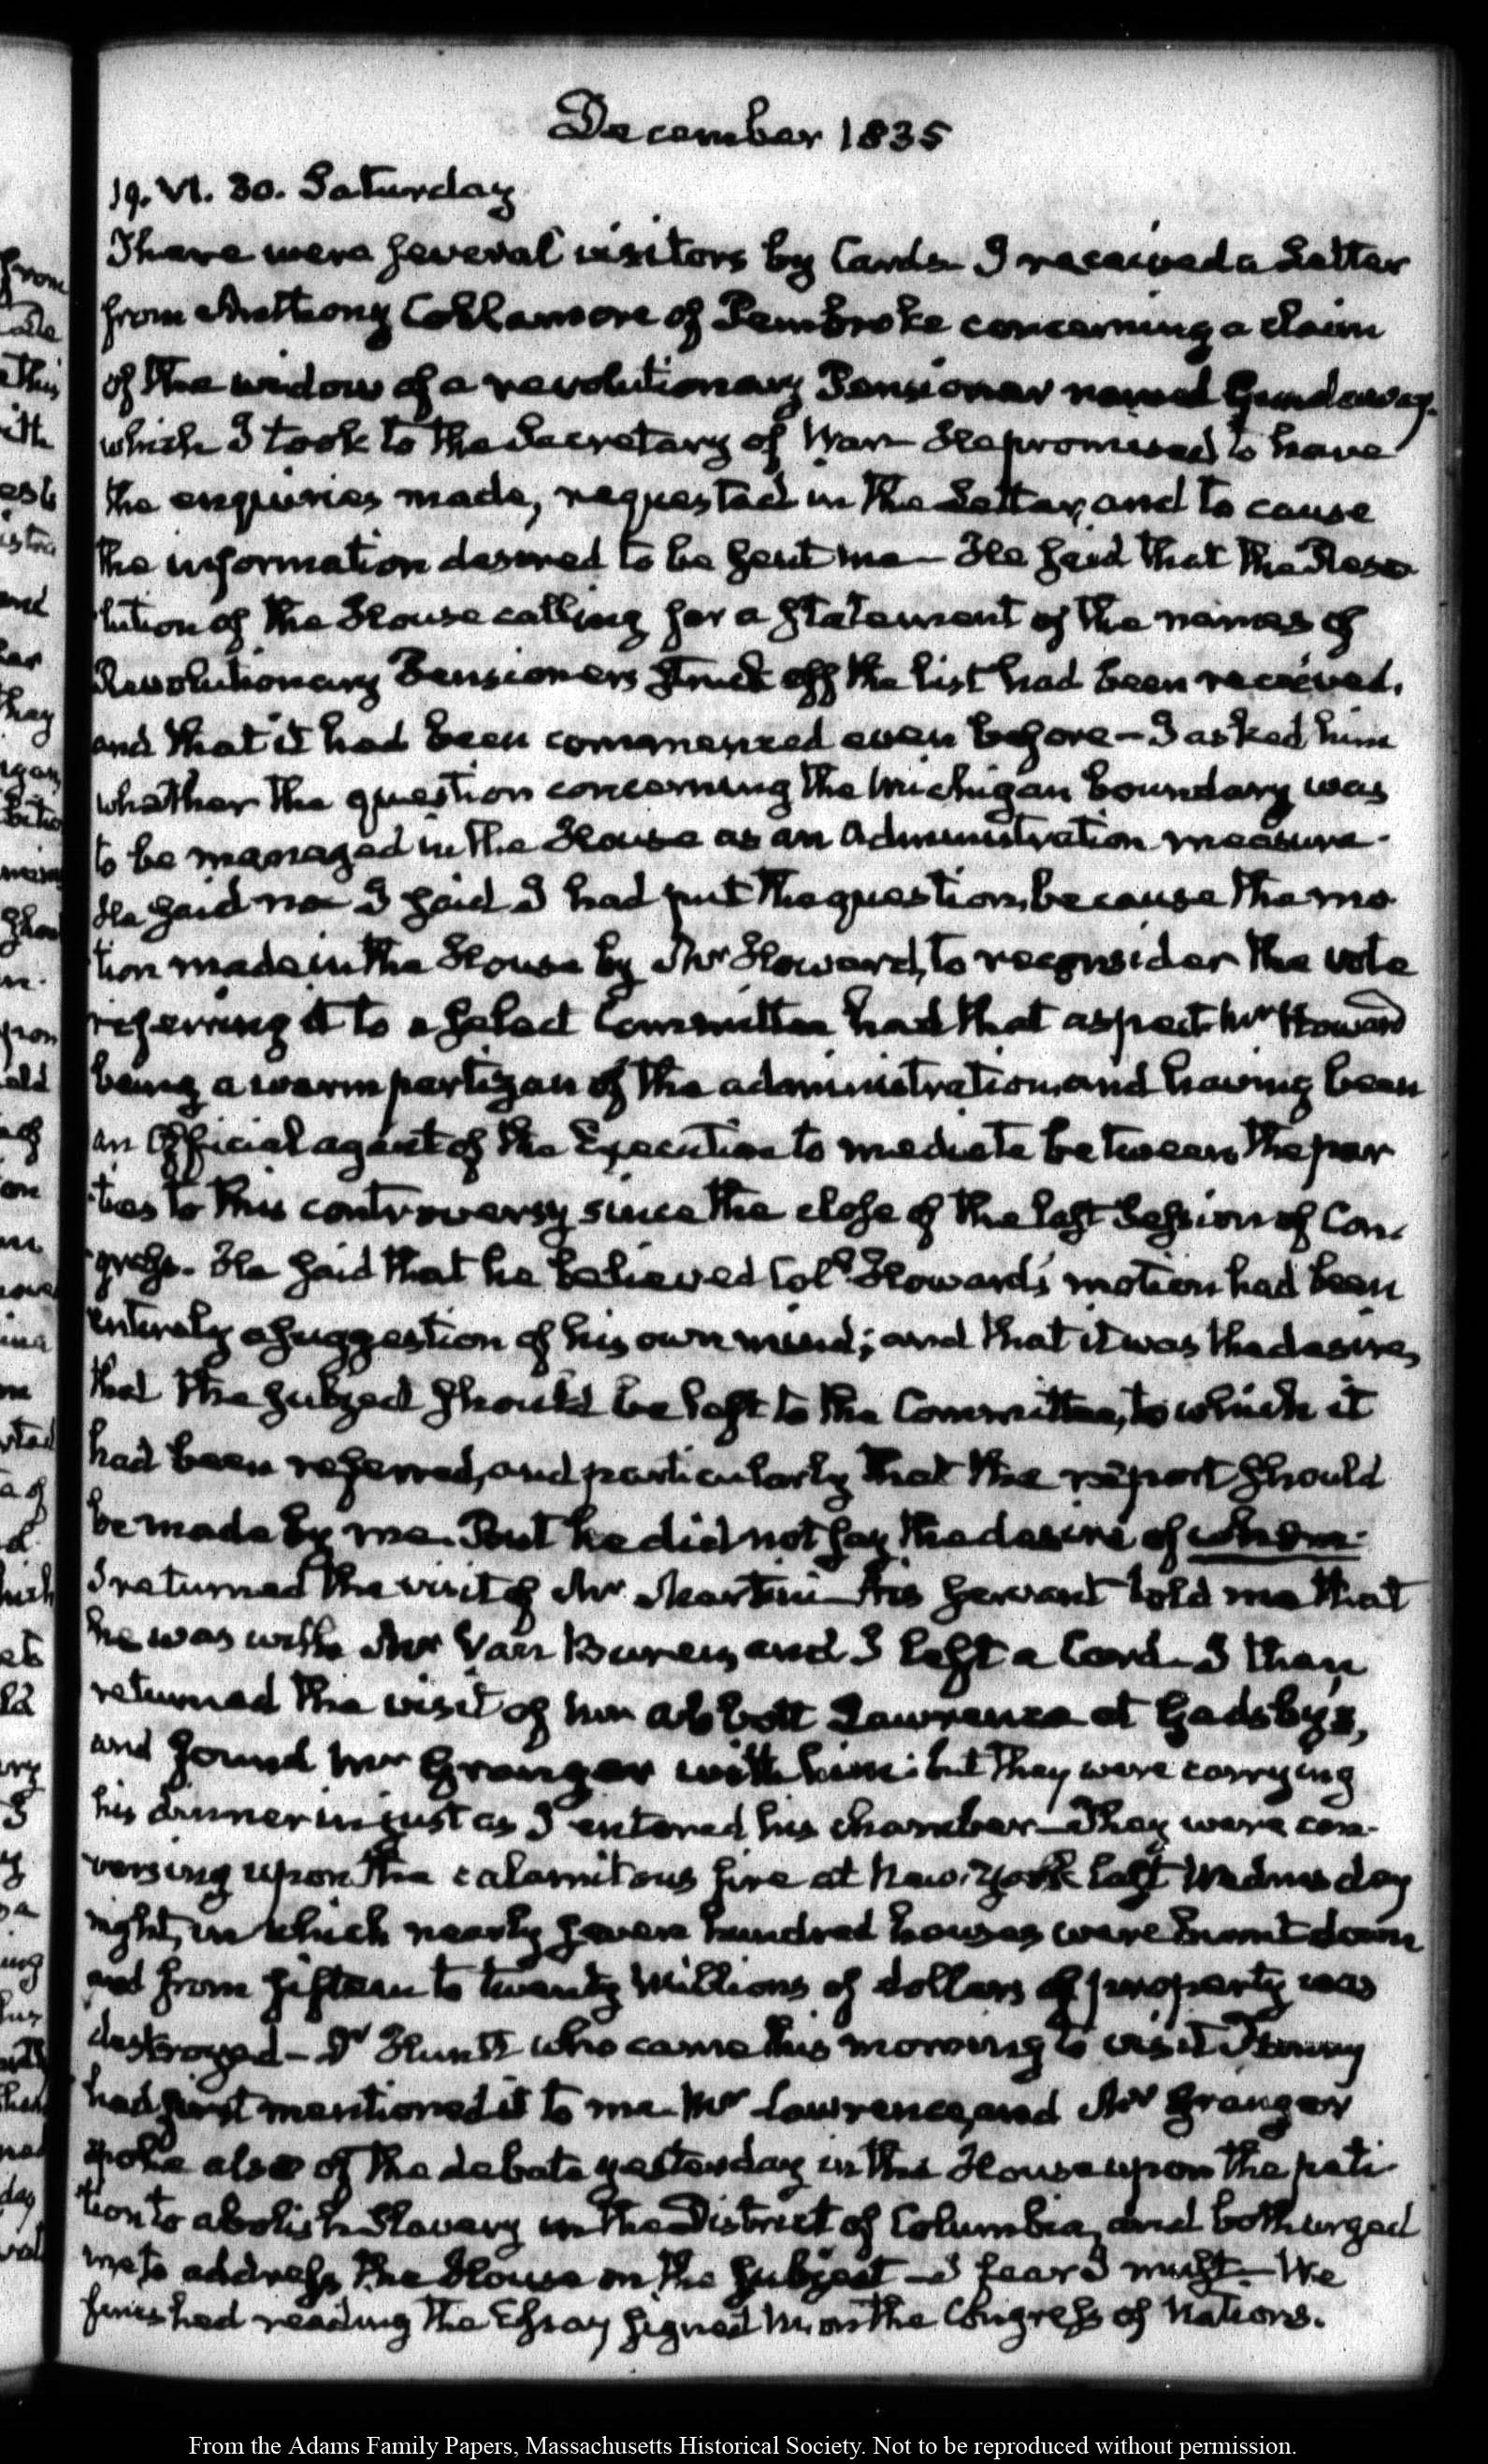 December 1835
19. VI. 30. Saturday
There were several visitors by Cards. I received a Letter
from Anthony Collamore of Pembroke concerning a claim
of the widow of a revolutionary Pensioner named
which I took to the Secretary of War. He promised to have
the enquiries made, requested in the Letter, and to cause
the information desired to be sent me— He said that the Reso
lution of the House calling for a statement of the names of
Revolutionary Pensioners struck off the list had been received,
and that it had been commenced even before— I asked him
whether the question concerning the Michigan boundary was
to be managed in the House as an Administration measure.
He said no. I said I had put the question, because the mo
tion made in the House by Mr Howard, to reconsider the vote
referring it to a select Committee had that aspect. Mr Howard
being a warm partizan of the administration, and having been
an Official agent of the Executive to mediate between the par
ties to this controversy since the close of the last Session of Con
gress. He said that he believed Col. Howard's motion had been
entirely a suggestion of his own mind; and that it was the desire,
that the subject should be left to the Committee, to which it
had been referred, and particularly that the report should
be made by me. But he did not say the desire of whom.
I returned the visit of Mr Martini— His servant told me that
he was with Mr Van Buren, and I left a Card. I then
returned the visit of Mr Abbott Lawrence at Gadsby's,
and found Mr Granger with him: but they were carrying
his dinner in just as I entered his chamber— They were con
versing upon the calamitous fire at New-York last Wednesday
night, in which nearly seven hundred houses were burnt down
and from fifteen to twenty Millions of dollars of property was
destroyed— Dr Huntt who came this morning to visit
had first mentioned it to me. Mr Lawrence, and Mr Granger
spoke also of the debate yesterday in the House upon the peti
tion to abolish Slavery in the District of Columbia, and both urged
me to address the House on the subject— I fear I must— We
finished reading the Essay signed M. on the Congress of Nations.
From the Adams Family Papers, Massachusetts Historical Society. Not to be reproduced without permission.